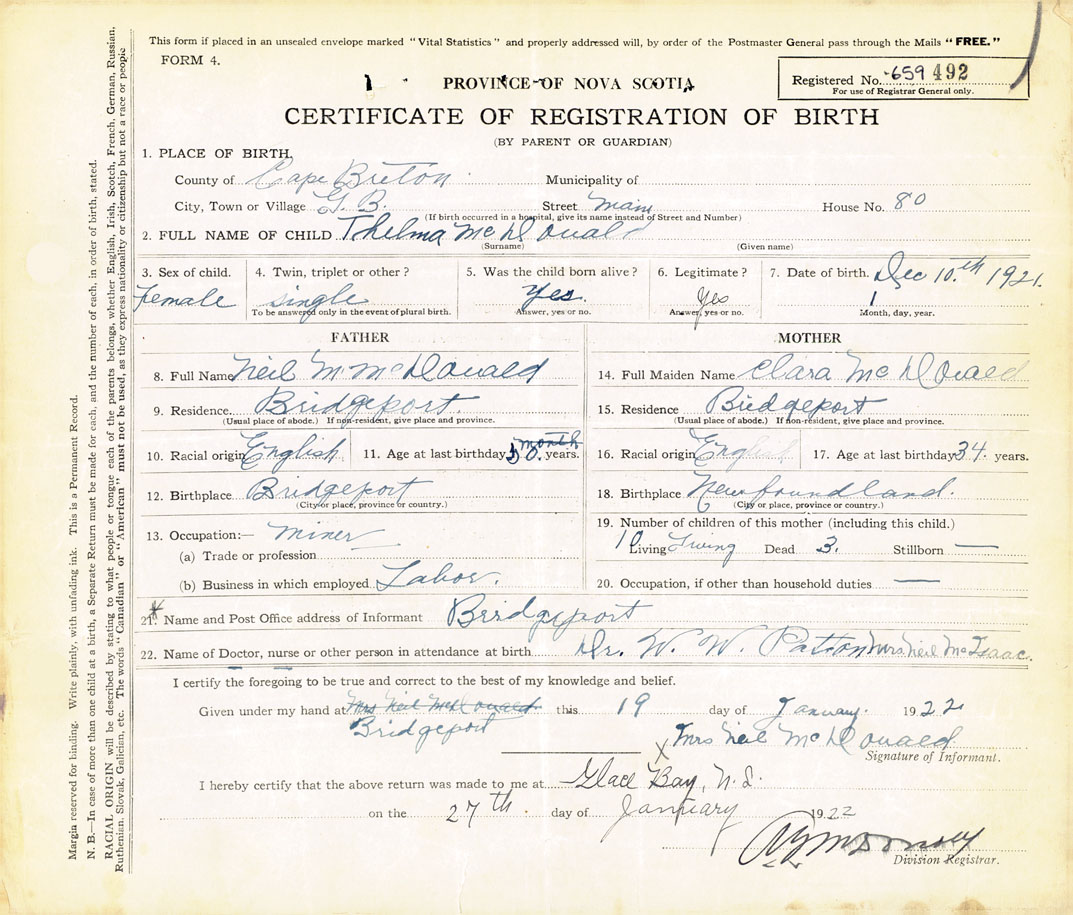 This form if placed in an unsealed envelope marked "Vital Statistics" and properly addressed will, by order of the Postmaster General pass through the Mails "FREE."
FORM 4.
PROVINCE OF NOVA SCOTIA
Registered No. 659 492
For use of Registrar General only.
CERTIFICATE OF REGISTRATION OF BIRTH
(BY PARENT OR GUARDIAN)
1. PLACE OF BIRTH.
County of Cape Breton Municipality of
City, Town or Village G. B. Street Main House No. 80
(If birth occurred in a hospital, give its name instead of Street and Number)
2. FULL NAME OF CHILD Thelma McDonald
(Surname) (Given name)
3. Sex of child. 4. Twin, triplet or other? 5. Was the child born alive? 6. Legitimate? 7. Date of birth. Dec 10th 1921.
Female single Yes. Yes
To be answered only in the event of plural birth. Answer, yes or no. Answer, yes or no. Month, day, year.
FATHER MOTHER
8. Full Name Neil M McDonald 14. Full Maiden Name Clara McDonald
9. Residence Bridgeport. 15. Residence Bridgeport
(Usual place of abode.) If non-resident, give place and province. (Usual place of abode.) If non-resident, give place and province.
10. Racial origin English 11. Age at last birthday month 50. years. 16. Racial origin English 17. Age at last birthday 34. years.
12. Birthplace Bridgeport 18. Birthplace Newfoundland.
(City or place, province or country.) (City or place, province or country.)
13. Occupation:— miner 19. Number of children of this mother (including this child.)
(a) Trade or profession 10 Living Living Dead 3. Stillborn —
(b) Business in which employed Labor. 20. Occupation, if other than household duties —
21. Name and Post Office address of Informant Bridgeport
22. Name of Doctor, nurse or other person in attendance at birth Dr. W. W. Patton Mrs Neil McIsaac.
I certify the foregoing to be true and correct to the best of my knowledge and belief.
Given under my hand at Mrs Neil McDonald this 19 day of January. 1922
Bridgeport
X Mrs Neil McDonald
Signature of Informant.
I hereby certify that the above return was made to me at Glace Bay, N.S.
on the 27th day of January 1922
Division Registrar.
Margin reserved for binding. Write plainly, with unfading ink. This is a Permanent Record.
N. B.—In case of more than one child at a birth, a Separate Return must be made for each, and the number of each, in order of birth, stated.
RACIAL ORIGIN will be described by stating to what people or tongue each of the parents belongs, whether English, Irish, Scotch, French, German, Russian,
Ruthenian, Slovak, Galician, etc. The words "Canadian" or "American" must not be used, as they express nationality or citizenship but not a race or people